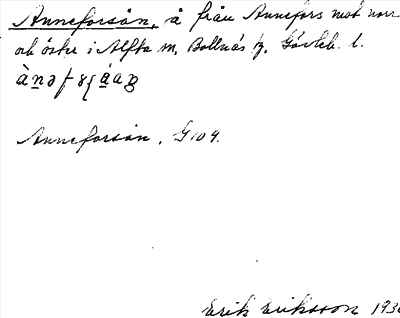 Anneforsån, å från Annefors mot norr
och öster i Alfta sn, Bollnäs tg, Gävleb. l.
Anneforsån, G109.
Erik Eriksson 193